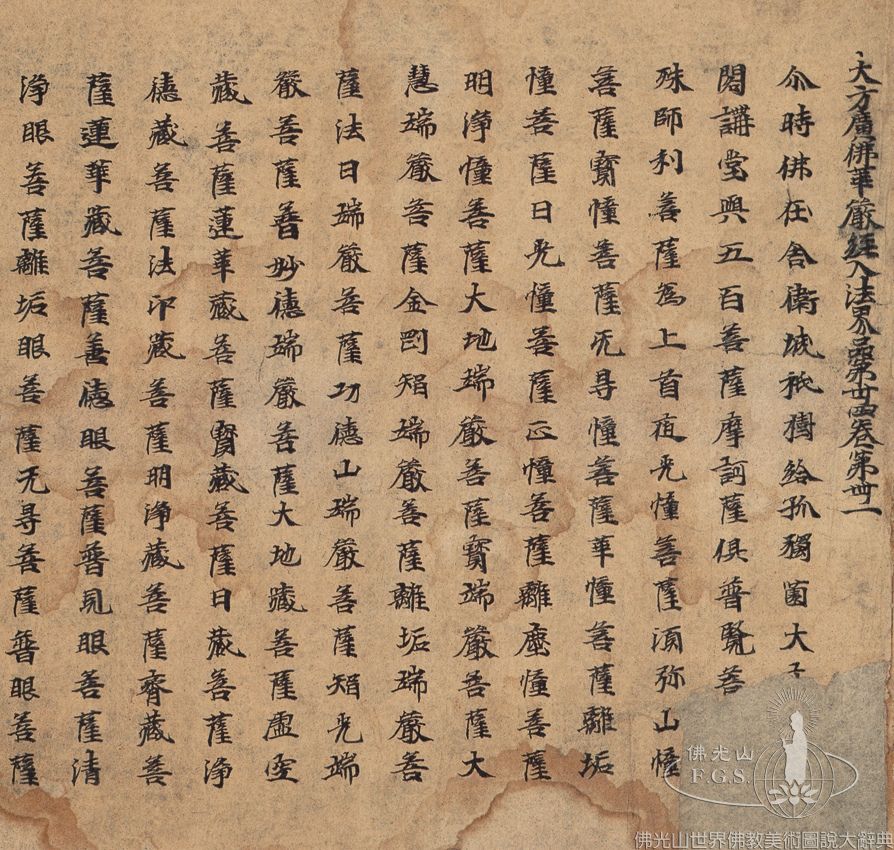 大方廣佛華嚴經入法界品第卅四卷第卌一
尒時佛在舍衛城祇樹給孤獨薗大
閣講堂與五百菩薩摩訶薩俱普賢菩
殊師利菩薩為上首夜光憧菩薩須弥山憧
菩薩寳憧菩薩无㝵憧菩薩華憧菩薩離垢
憧菩薩日光憧菩薩正憧菩薩離塵憧菩薩
明淨憧菩薩大地端嚴菩薩寳端嚴菩薩大
慧端嚴菩薩金剛智端嚴菩薩離垢端嚴菩
薩法日端嚴菩薩功德山端嚴菩薩智光端
嚴菩薩普妙德端嚴菩薩大地藏菩薩虛空
藏菩薩蓮華藏菩薩寳藏菩薩日藏菩薩淨
德藏菩薩法印藏菩薩明淨藏菩薩齊藏菩
薩蓮華藏菩薩善德眼菩薩普見眼菩薩清
淨眼菩薩離垢眼菩薩无㝵菩薩普眼菩薩
佛光山
F.G.S.
佛光山世界佛教美術圖說大辭典